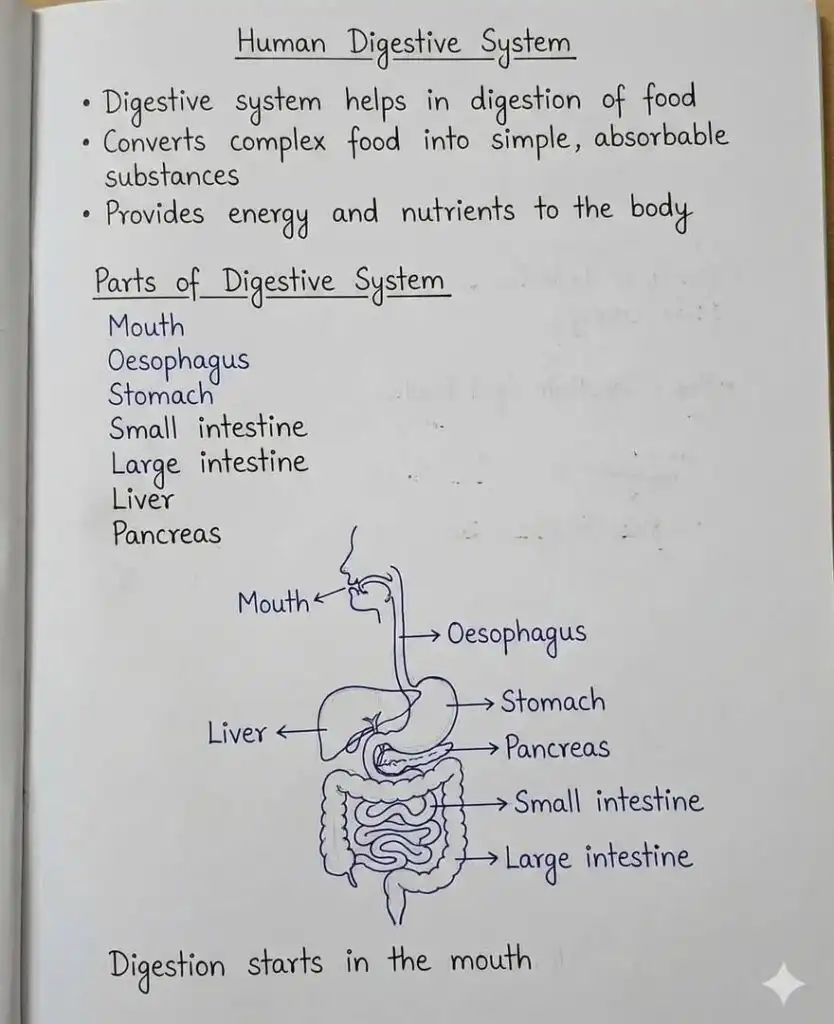 Human Digestive System
• Digestive system helps in digestion of food
• Converts complex food into simple, absorbable
substances
• Provides energy and nutrients to the body
Parts of Digestive System
Mouth
Oesophagus
Stomach
Small intestine
Large intestine
Liver
Pancreas
Mouth
Oesophagus
Stomach
Liver
Pancreas
Small intestine
Large intestine
Digestion starts in the mouth